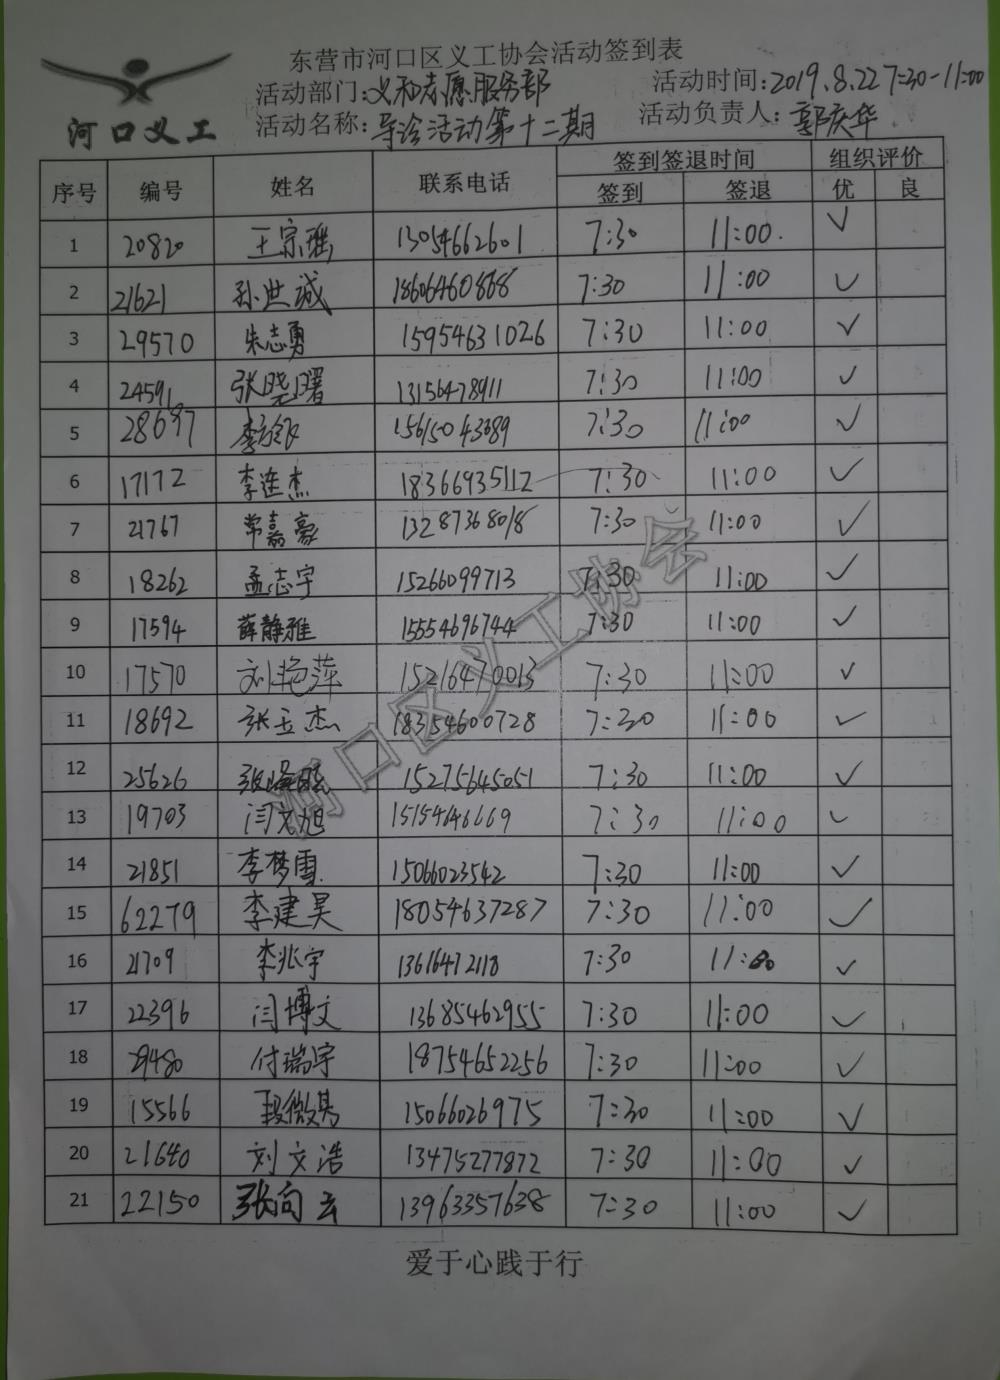 东营市河口区义工协会活动签到表
河口义工
活动部门:义和志愿服务部 活动时间:2019.8.22 7:30-11:00
活动名称:导诊活动第十二期 活动负责人:郭庆华
序号 编号 姓名 联系电话 签到签退时间 组织评价
签到 签退 优 良
1 20820 王宗雅 13054662601 7:30 11:00. ✓
2 21621 孙世诚 18606460868 7:30 11:00 ✓
3 29570 朱志勇 15954631026 7:30 11:00 ✓
4 24591 张晓曙 13156478911 7:30 11:00 ✓
5 28697 7:30 11:00 ✓
6 17172 李连杰 18366935112 7:30 11:00 ✓
7 21767 常嘉豪 13287368018 7:30 11:00 ✓
8 18262 孟志宇 15266099713 7:30 11:00 ✓
9 17594 薛静雅 15554696744 7:30 11:00 ✓
10 17570 刘艳萍 15216470013 7:30 11:00 ✓
11 18692 张玉杰 18354600728 7:30 11:00 ✓
12 25626 15275645051 7:30 11:00 ✓
13 19703 闫文旭 15154646669 7:30 11:00 ✓
14 21851 李梦雪 15066023542 7:30 11:00 ✓
15 62279 李建昊 18054637287 7:30 11:00 ✓
16 21709 李兆宇 13616472118 7:30 11:00 ✓
17 22396 闫博文 13685462955 7:30 11:00 ✓
18 29480 付瑞宇 18754652256 7:30 11:00 ✓
19 15566 15066026975 7:30 11:00 ✓
20 21640 刘文浩 13475277872 7:30 11:00 ✓
21 22150 张向云 13963357638 7:30 11:00 ✓
河口区义工协会
爱于心践于行